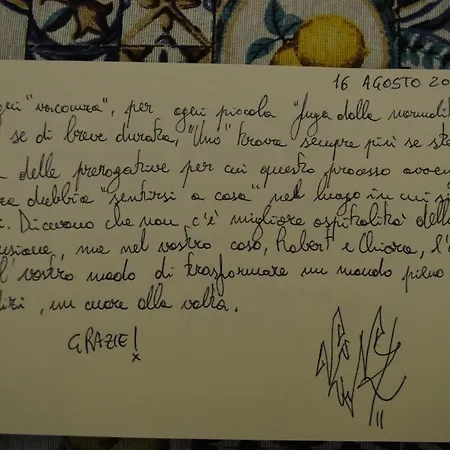 16 AGOSTO 20
gni "vacanza", per ogni piccola "fuga dalla normalit
se di breve durata, "Uno" trova sempre più se ste
delle prerogative per cui questo processo avveng
debba "sentirsi a casa" nel luogo in cui si
. Dicevano che non c'è migliore ospitalità della
usione, ma nel vostro caso, Robert e Chiara, l'
l vostro modo di trasformare un mondo pieno
, un cuore alla volta.
GRAZIE!